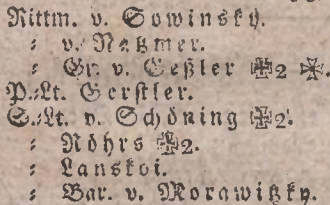 Rittm. v. Sowinsky.
: v. Natzmer.
: Gr. v. Geßler ✠2 ✠.
P.-Lt. Gerstler.
S.-Lt. v. Schöning ✠2.
: Röhrs ✠2.
: Lanskoi.
: Bar. v. Morawitzky.